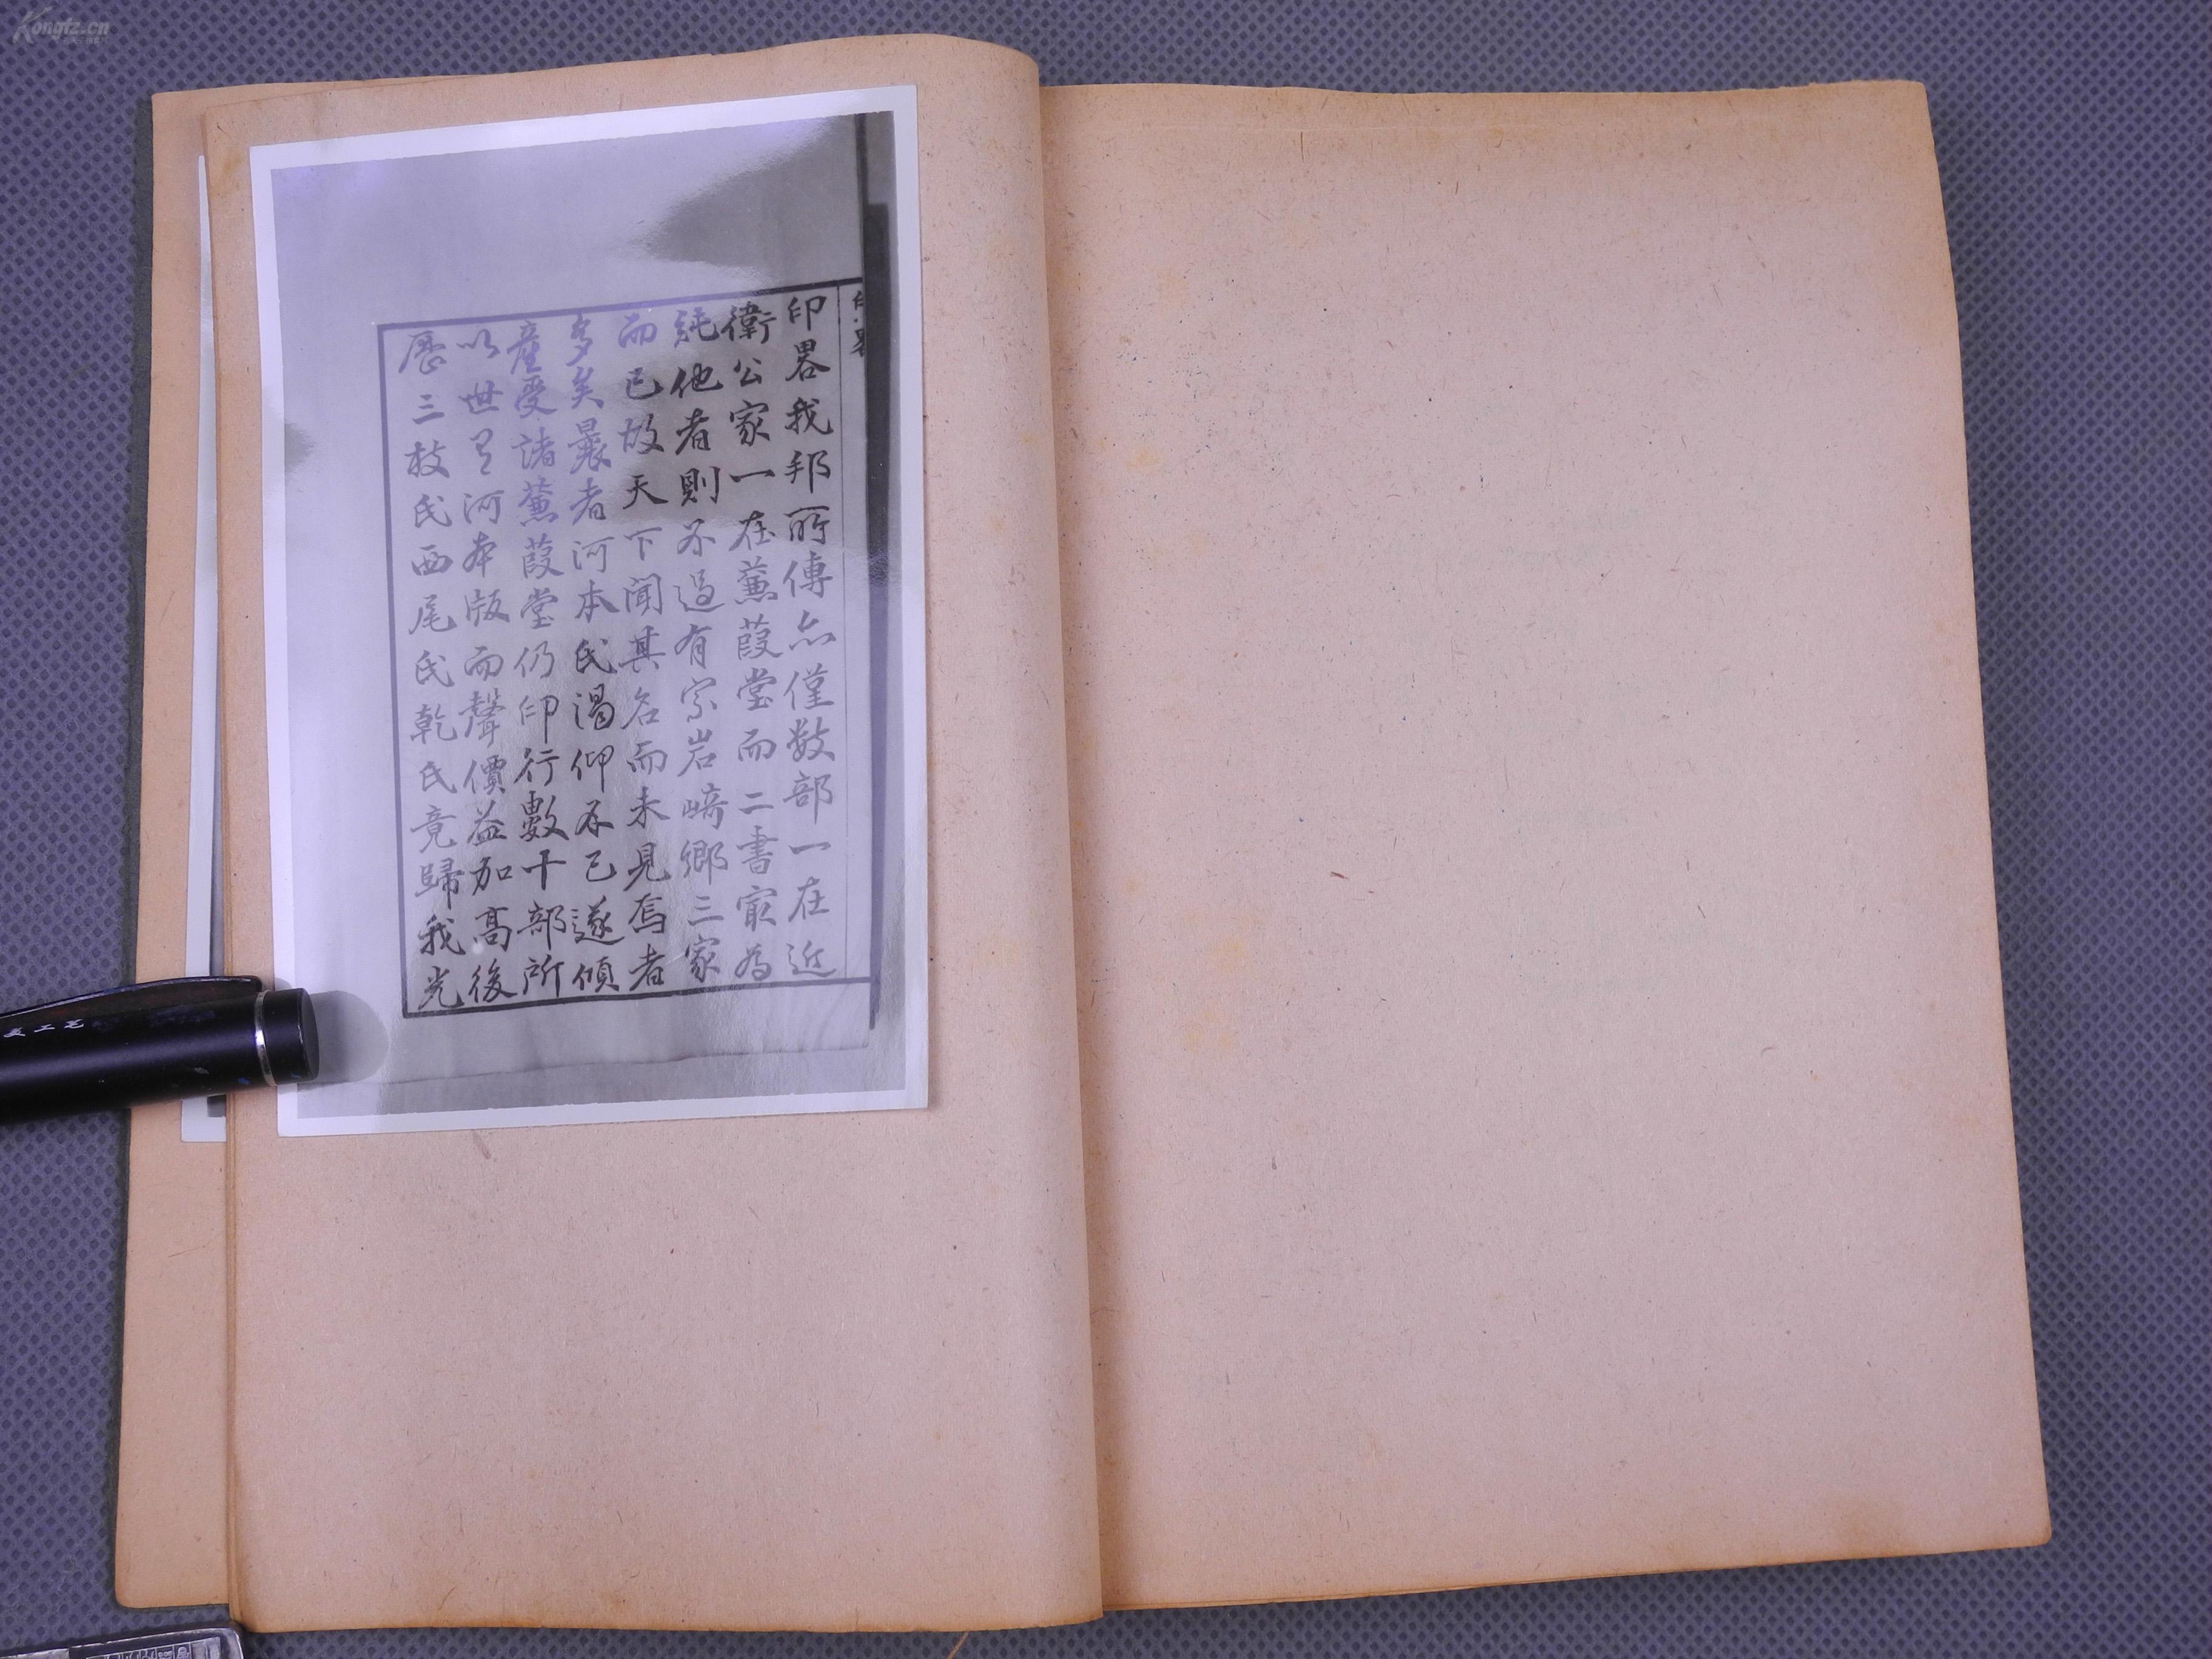 印畧我邦所傳亦僅数部一在近
衛公家一在蒹葭堂而二書㝡為
純他者則不過有宗岩崎鄉三家
而已故天下聞其名而未見焉者
多矣曩者河本氏渴仰不已遂傾
產受諸蒹葭堂仍印行數十部所
以世有河本版而聲價益加高後
歷三枝氏西尾氏乾氏竟歸我光
Kongfz.cn